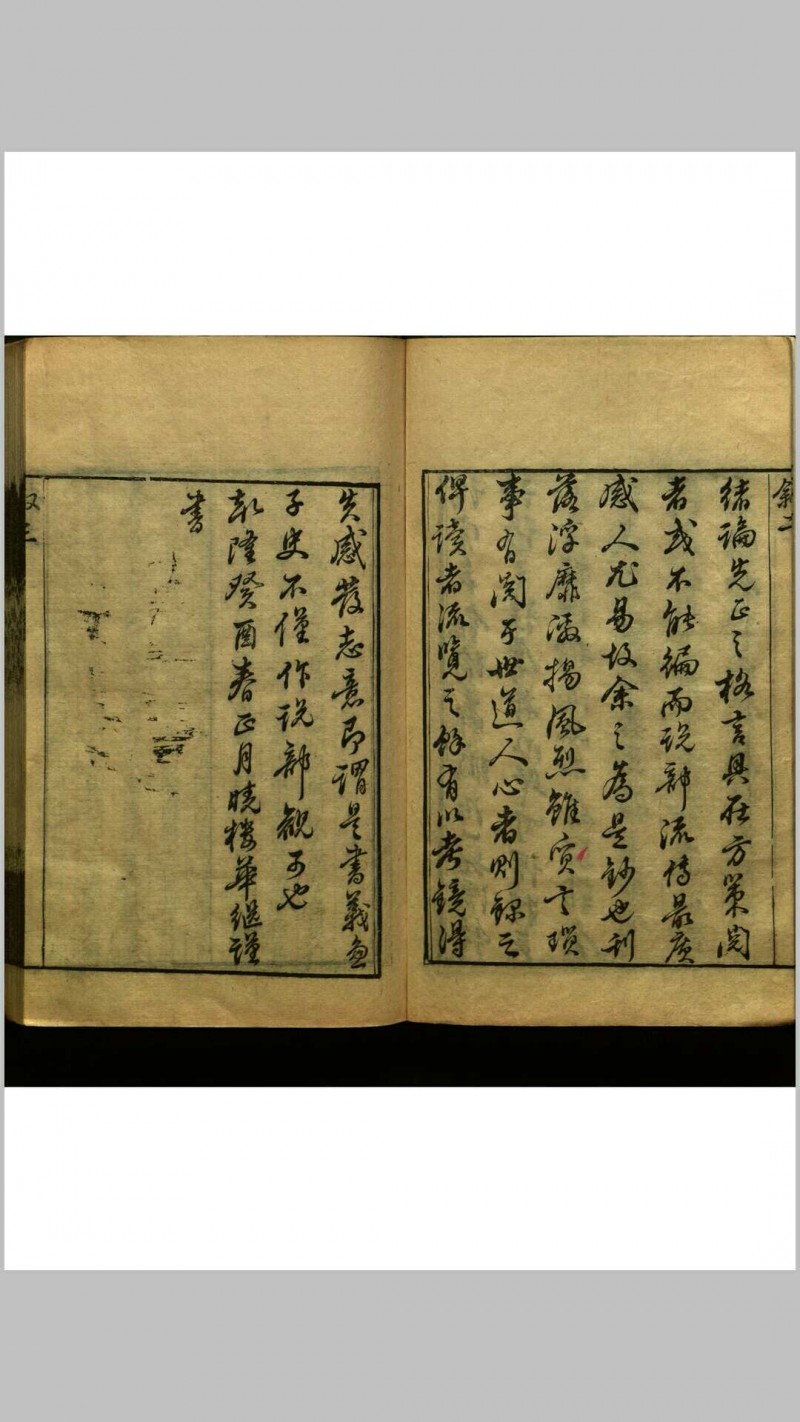 叙二
緒論先正之格言具在方策閲
者或不能徧而説部流傳最廣
感人尤易故余之為是鈔也刊
落浮靡激揚風烈雖寅言瑣
事有関于世道人心者則録之
俾讀者流覽之餘有以考鏡得
失感發志意即謂是書義兼
子史不僅作説部觀可也
乾隆癸酉春正月曉樓華繼謹
書
叙三